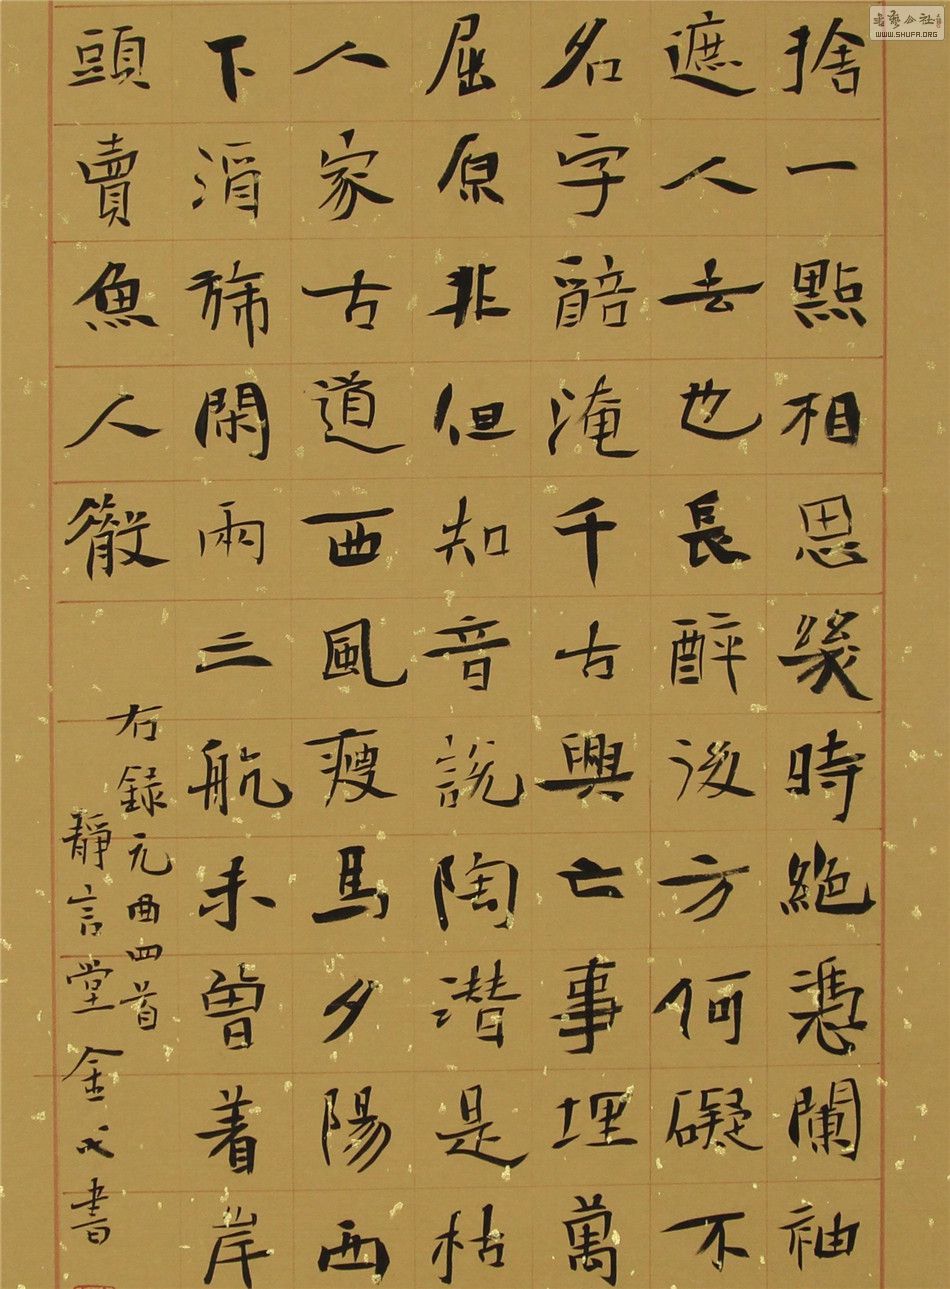 書藝公社
WWW.SHUFA.ORG
捨一點相思幾時絕憑闌袖
遮人去也長醉後方何礙不
名字醅淹千古興亡事埋萬
屈原非但知音說陶潛是枯
人家古道西風瘦馬夕陽西
下酒旆閑兩三航未曾着岸
頭賣魚人散
右錄元曲四首
靜言堂金書